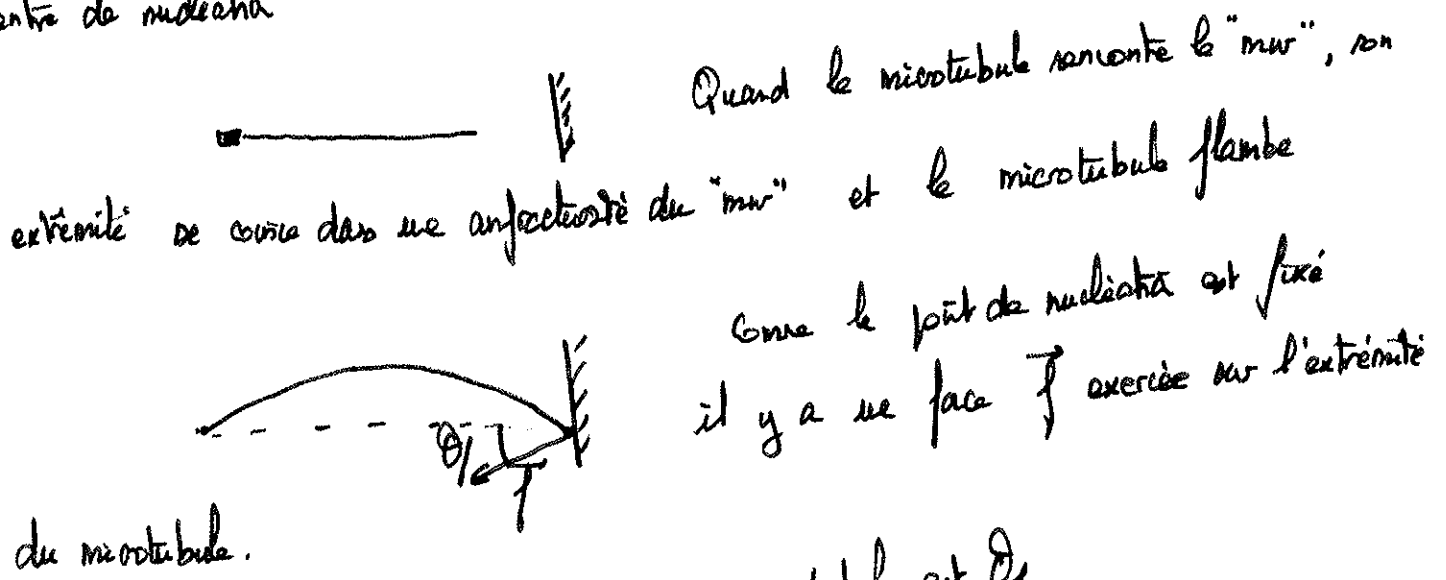 centre de nucléatn
Quand le microtubule rencontre le "mur", son
extrémité se coince dans une anfractuosité du "mur" et le microtubule flambe
Comme le point de nucléatn est fixé
θ
f
il y a une force f exercée sur l'extrémité
du microtubule.
est θ